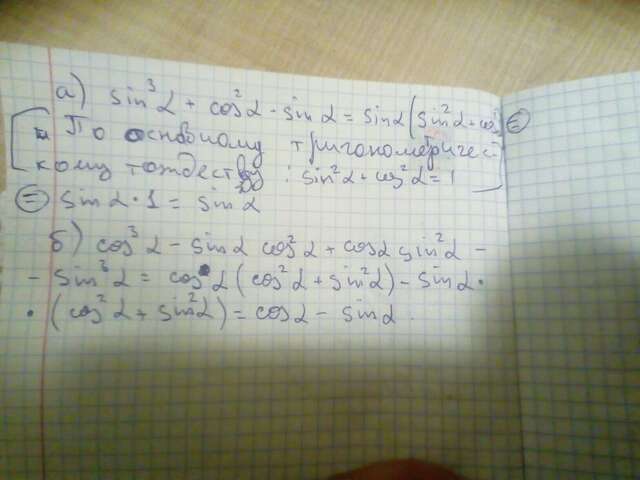 а) sin³α + cos²α · sin α = sin α (sin²α + cos²
[ По основному тригонометричес-
кому тождеству : sin²α + cos²α = 1 ]
= sin α · 1 = sin α
б) cos³α - sin α cos²α + cos α sin²α -
- sin³α = cos α (cos²α + sin²α) - sin α ·
· (cos²α + sin²α) = cos α - sin α.